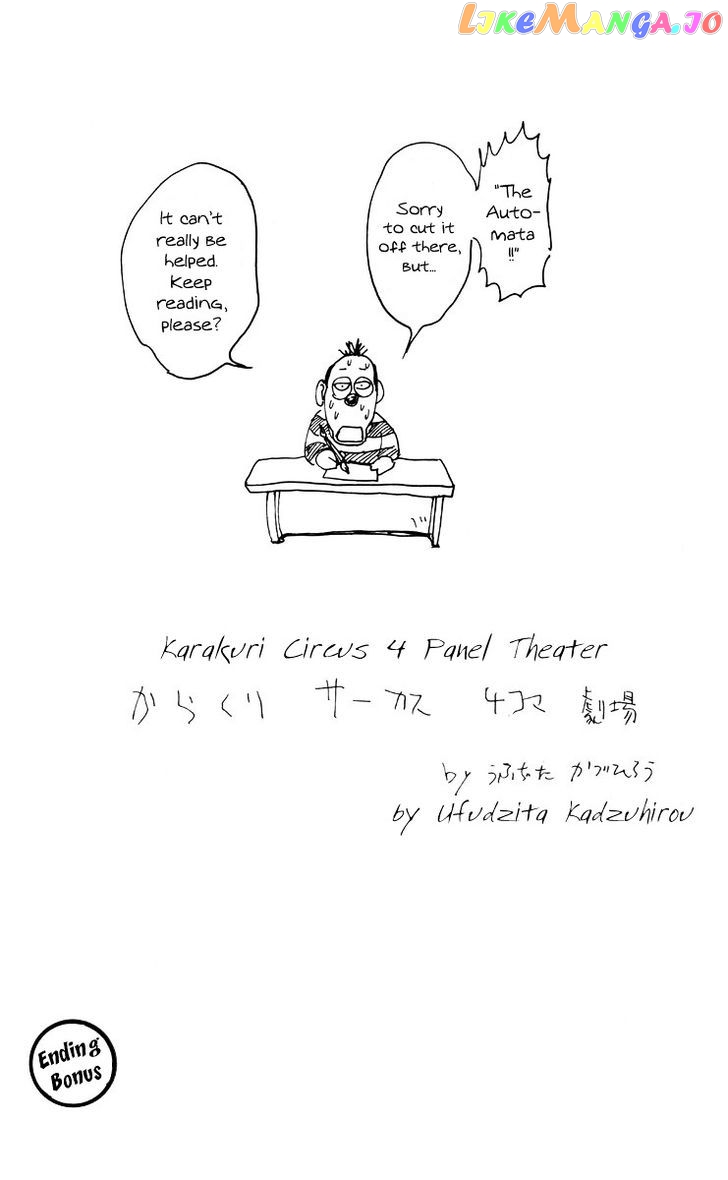 LIKEMANGA.IO
"The
Auto-
mata
!!"
Sorry
to cut it
off there,
But...
It can't
really Be
helped.
Keep
reading,
please?
Karakuri Circus 4 Panel Theater
からくり サーカス 4コマ 劇場
by うふぢた かづひろう
by Ufudzita Kadzuhirou
Ending
Bonus